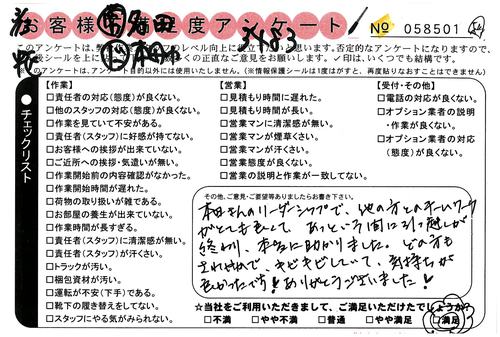 お客様満足度アンケート
No 058501
このアンケートは、
✓印は、いくつでも結構です。
※このアンケートは、アンケート目的以外には使用いたしません。(情報保護シールは1度がすと、再度貼りなおすことはできません)
チェックリスト
【作業】
□責任者の対応(態度)が良くない。
□他のスタッフの対応(態度)が良くない。
□作業を見ていて不安がある。
□責任者(スタッフ)に好感が持てない。
□お客様への挨拶が出来ていない。
□ご近所への挨拶・気遣いが無い。
□作業開始前の内容確認がなかった。
□作業開始時間が遅れた。
□荷物の取り扱いが雑である。
□お部屋の養生が出来ていない。
□作業時間が長すぎる。
□責任者(スタッフ)に清潔感が無い。
□責任者(スタッフ)が汗くさい。
□トラックが汚い。
□梱包資材が汚い。
□運転が不安(下手)である。
□靴下の履き替えをしていない。
□スタッフにやる気がみられない。
【営業】
□見積もり時間に遅れた。
□見積もり時間が長い。
□営業マンに清潔感が無い。
□営業マンが煙草くさい。
□営業マンが汗くさい。
□営業態度が良くない。
□営業の説明と作業が一致してない。
【受付・その他】
□電話の対応が良くない。
□オプション業者の説明
・作業が良くない。
□オプション業者の対応
(態度)が良くない。
その他、ご意見・ご要望等ありましたらお書き下さい。
本田さんのリーダーシップで、他の方とのチームワーク
がとても良くて、あっという間に引っ越しが
終わり、本当に助かりました。どの方も
さわやかで、キビキビしていて、気持ちが
良かったです!ありがとうございました!
☆当社をご利用いただきまして、ご満足いただけたでしょうか?
□不満 □やや不満 □普通 □やや満足 □満足